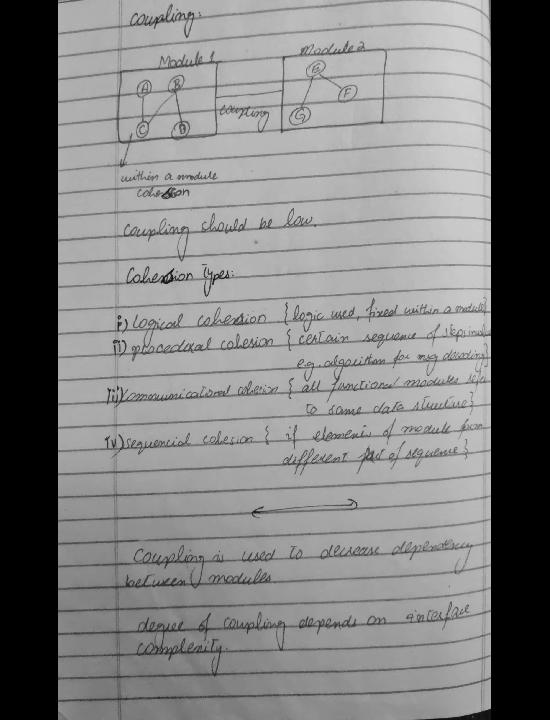 Coupling:
Module 1
Module 2
A
B
C
D
E
F
G
coupling
within a module
cohesion
Coupling should be low.
Cohesion Types:
i) logical cohesion { logic used, fixed within a module}
ii) procedural cohesion { certain sequence of steps
e.g. algorithm for msg decoding}
iii) communicational cohesion { all functional modules
to same data structure}
iv) sequencial cohesion { if elements of module from
different part of sequence}
Coupling is used to decrease dependency
between modules
degree of coupling depends on interface
complexity.